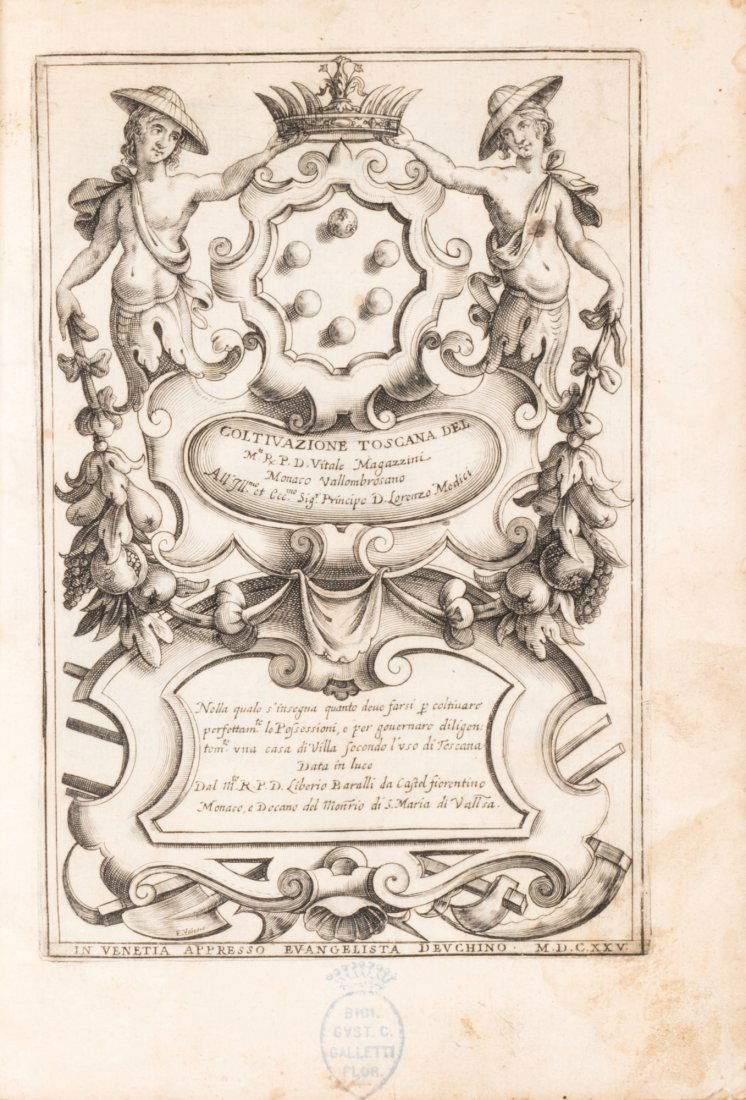 COLTIVAZIONE TOSCANA DEL
M.to R. P. D. Vitale Magazzini
Monaco Vallombrosano
All'Ill.mo et Ecc.mo Sig.r Principe D. Lorenzo Medici
Nella quale s'insegna quanto deve farsi ꝑ coltivare
perfettam.te le Possessioni, e per governare diligen:
tem.te vna casa di Villa secondo l'vso di Toscana
Data in luce
Dal M.to R. P. D. Liberio Baralli da Castel fiorentino
Monaco, e Decano del Mon.rio di S. Maria di Vall.sa.
IN VENETIA APPRESSO EVANGELISTA DEVCHINO · M.D.C.XXV.
BIBL.
GVST. C.
GALLETTI
FLOR.